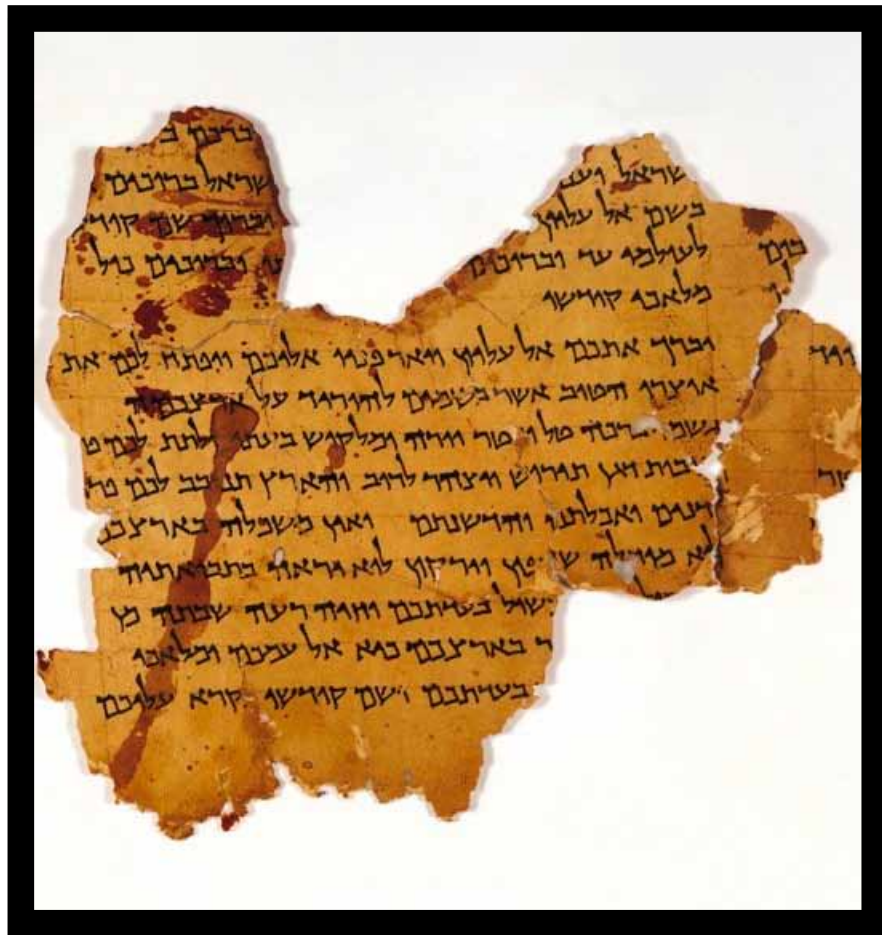 ברכם ב
שראל וענ שראל ברוכים
בשם אל עליון וברוך שם קודש
לעולמי עד וברוכים וברוכים כול
מלאכי קודשו
יברך אתכם אל עליון ויאר פניו אליכם ויפתח לכם את
אוצרו הטוב אשר בשמים להוריד על ארצכמה
גשמי ברכה טל ומטר יורה ומלקוש בעתו ולתת לכם
תירוש ויצהר לרוב והארץ תנובב לכם פר
דנים ואכלתם והדשנתם ואין משכלה בארצכ
מוחלה שדפון וירקון לוא יראה בתבואתיה
שול בעדתכם וחיה רעה שבתה מן
ר בארצכם כיא אל עמכם ומלאכי
בעדתכם ושם קודשו נקרא עליכם